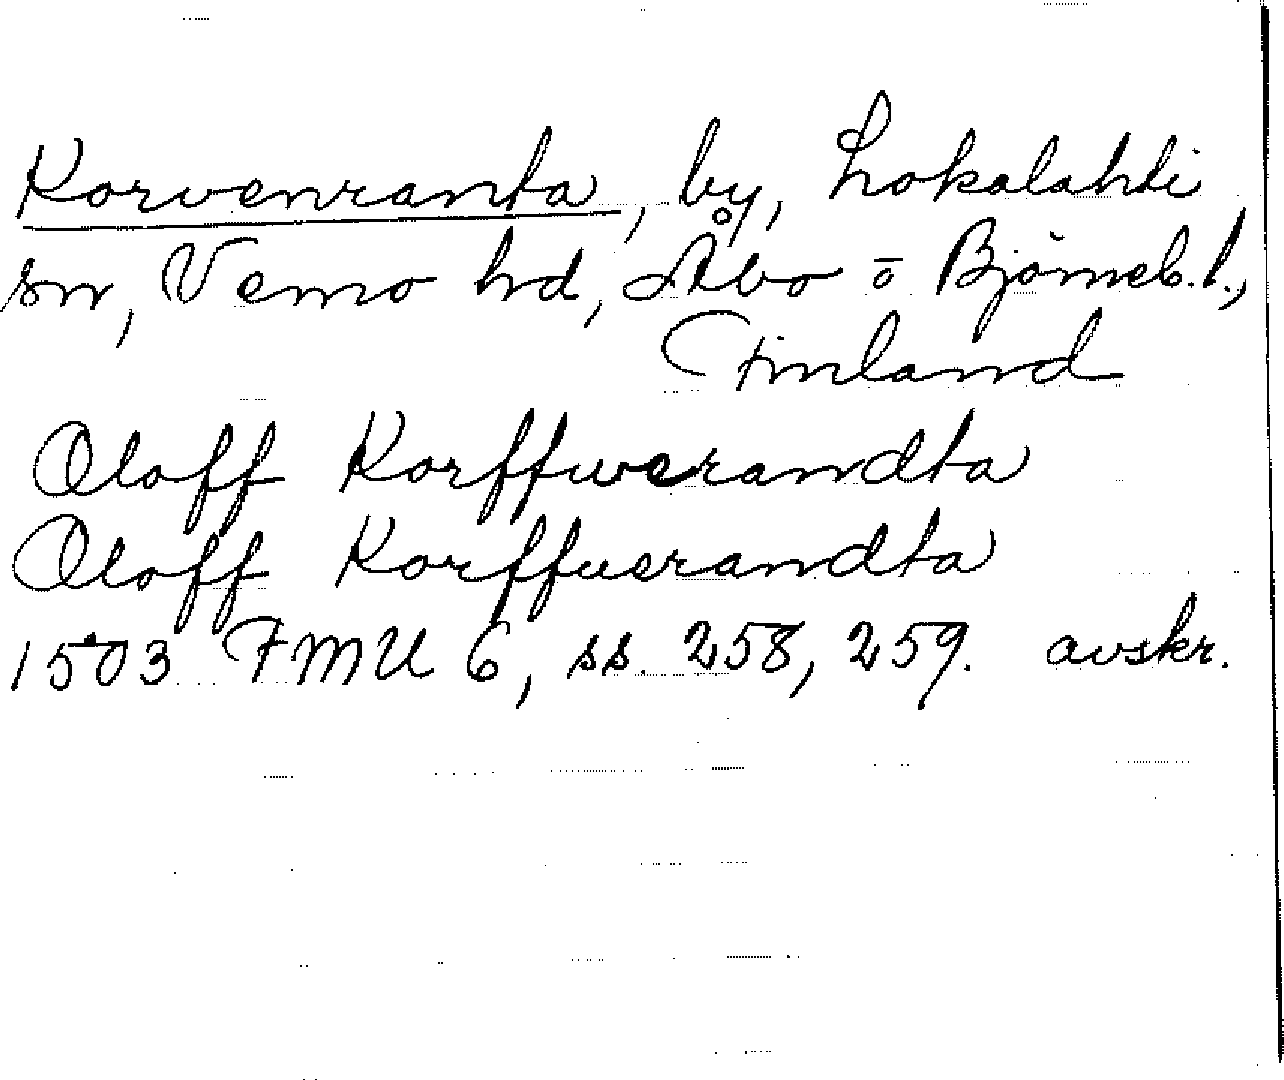 Korvenranta, by, Lokalahti
sn, Vemo hd, Åbo o Björneb. l.,
Finland
Oloff Korffwerandta
Oloff Korffuerandta
1503 FMU 6, ss. 258, 259. avskr.